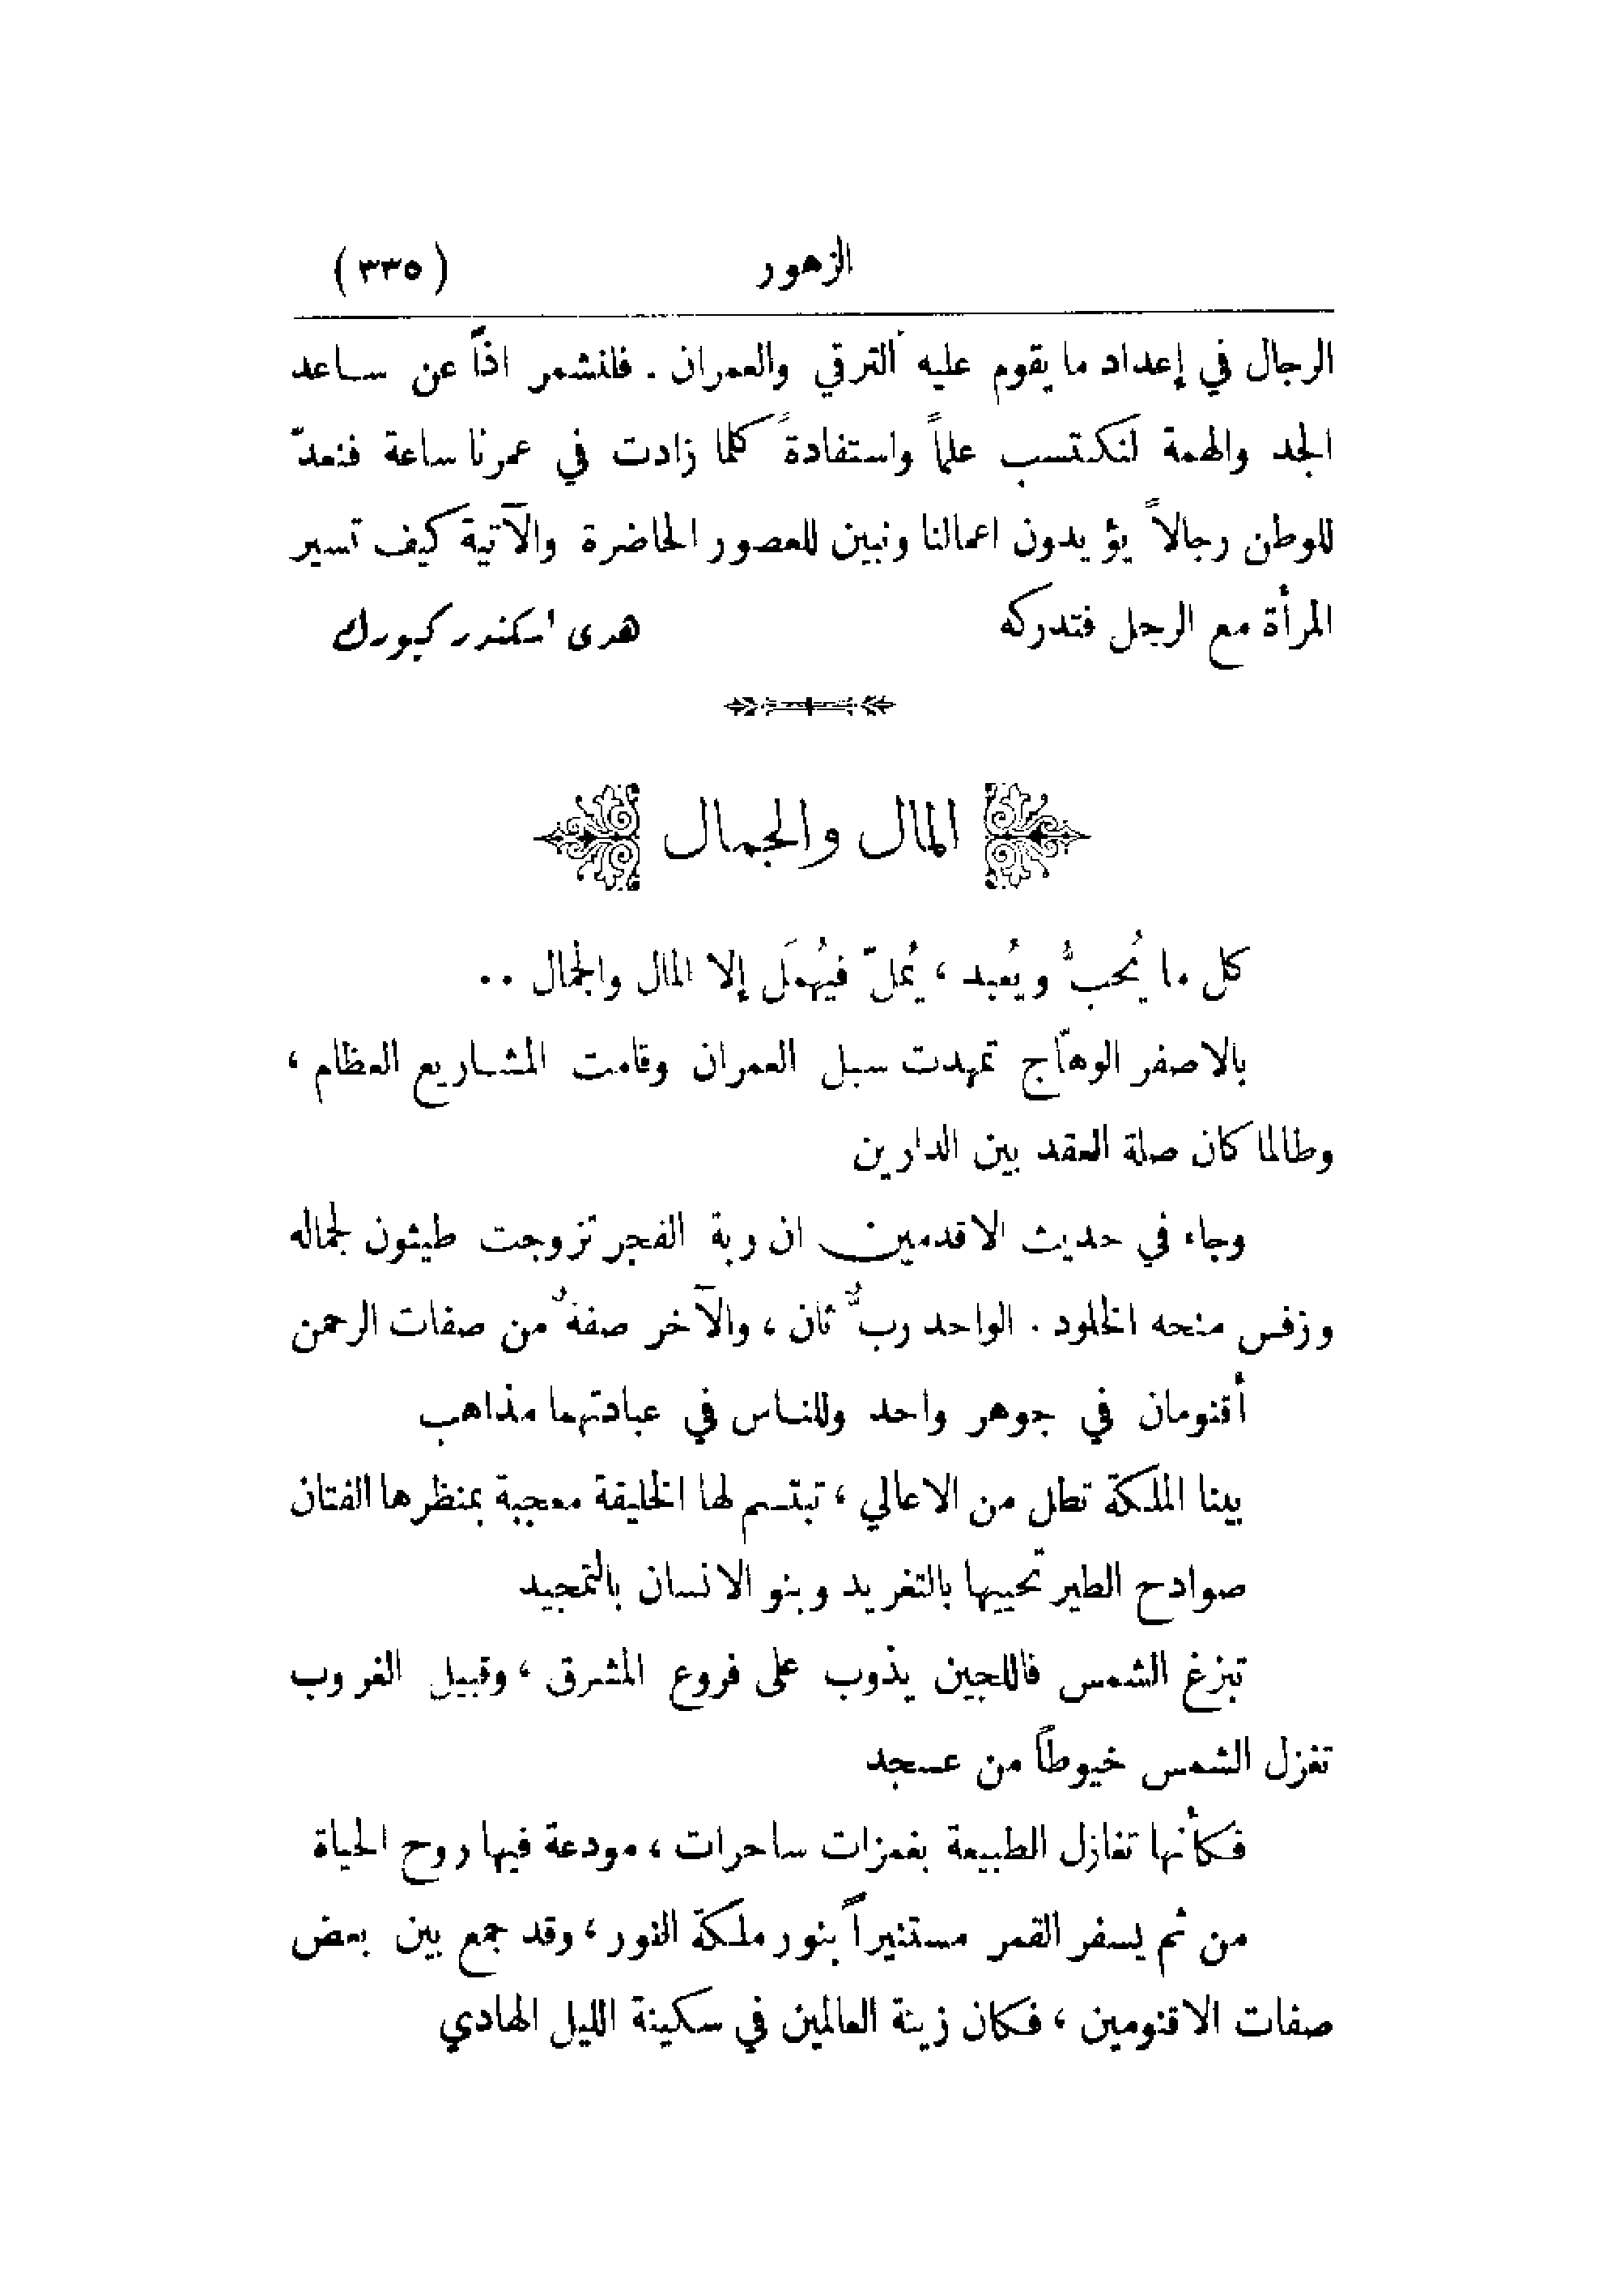 الزهور (٣٣٥)
الرجال في إعداد ما يقوم عليه الترقي والعمران. فلنشمر اذاً عن ساعد
الجد والهمة لنكتسب علماً واستفادةً كلما زادت في عمرنا ساعة فنعدّ
للوطن رجالاً يؤيدون اعمالنا ونبين للعصور الحاضرة والآتية كيف تسير
المرأة مع الرجل فتدركه هدى اسكندر كيورك
المال والجمال
كل ما يُحبُّ ويُعبد ، يُملّ فيُهمَل إلا المال والجمال ..
بالاصفر الوهاّج تمهدت سبل العمران وقامت المشاريع العظام ،
وطالما كان صلة العقد بين الدارين
وجاء في حديث الاقدمين ان ربة الفجر تزوجت طيثون لجماله
وزفس منحه الخلود . الواحد ربٌّ ثان ، والآخر صفةٌ من صفات الرحمن
أقنومان في جوهر واحد وللناس في عبادتهما مذاهب
بينا الملكة تطل من الاعالي ، تبتسم لها الخليقة معجبة بمنظرها الفتان
صوادح الطير تحييها بالتغريد وبنو الانسان بالتمجيد
تبزغ الشمس فاللجين يذوب على فروع المشرق ، وقبيل الغروب
تغزل الشمس خيوطاً من عسجد
فكأنها تغازل الطبيعة بغمزات ساحرات ، مودعة فيها روح الحياة
من ثم يسفر القمر مستنيراً بنور ملكة النور ، وقد جمع بين بعض
صفات الاقنومين ، فكان زينة العالمين في سكينة الليل الهادي